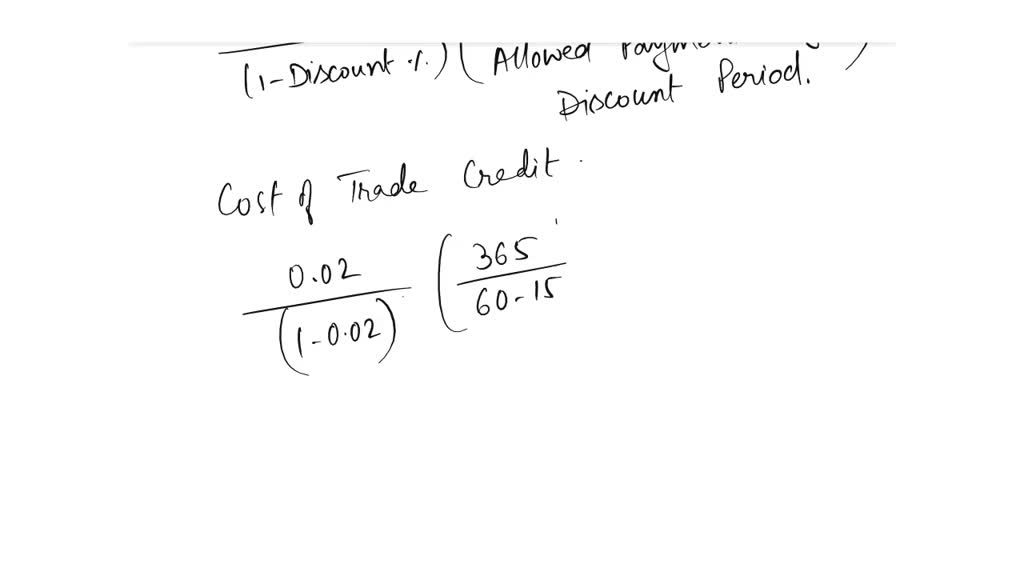 (1-Discount %) ( Allowed
Discount Period. )
Cost of Trade Credit.
0.02 ( 365
(1-0.02) 60-15